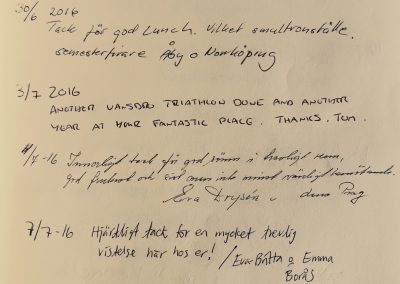 30/6 2016
Tack för god Lunch. Vilket smultronställe.
semesterfirare Åby o Norrköping
3/7 2016
ANOTHER VANSBRO TRIATHLON DONE AND ANOTHER
YEAR AT YOUR FANTASTIC PLACE. THANKS. TOM.
4/7-16 Innerligt tack för god sömn i härligt rum,
god frukost och sist men inte minst vänligt bemötande.
Eva Drysén
7/7-16 Hjärtligt tack för en mycket trevlig
vistelse här hos er! / Eva-Britta o Emma
Borås